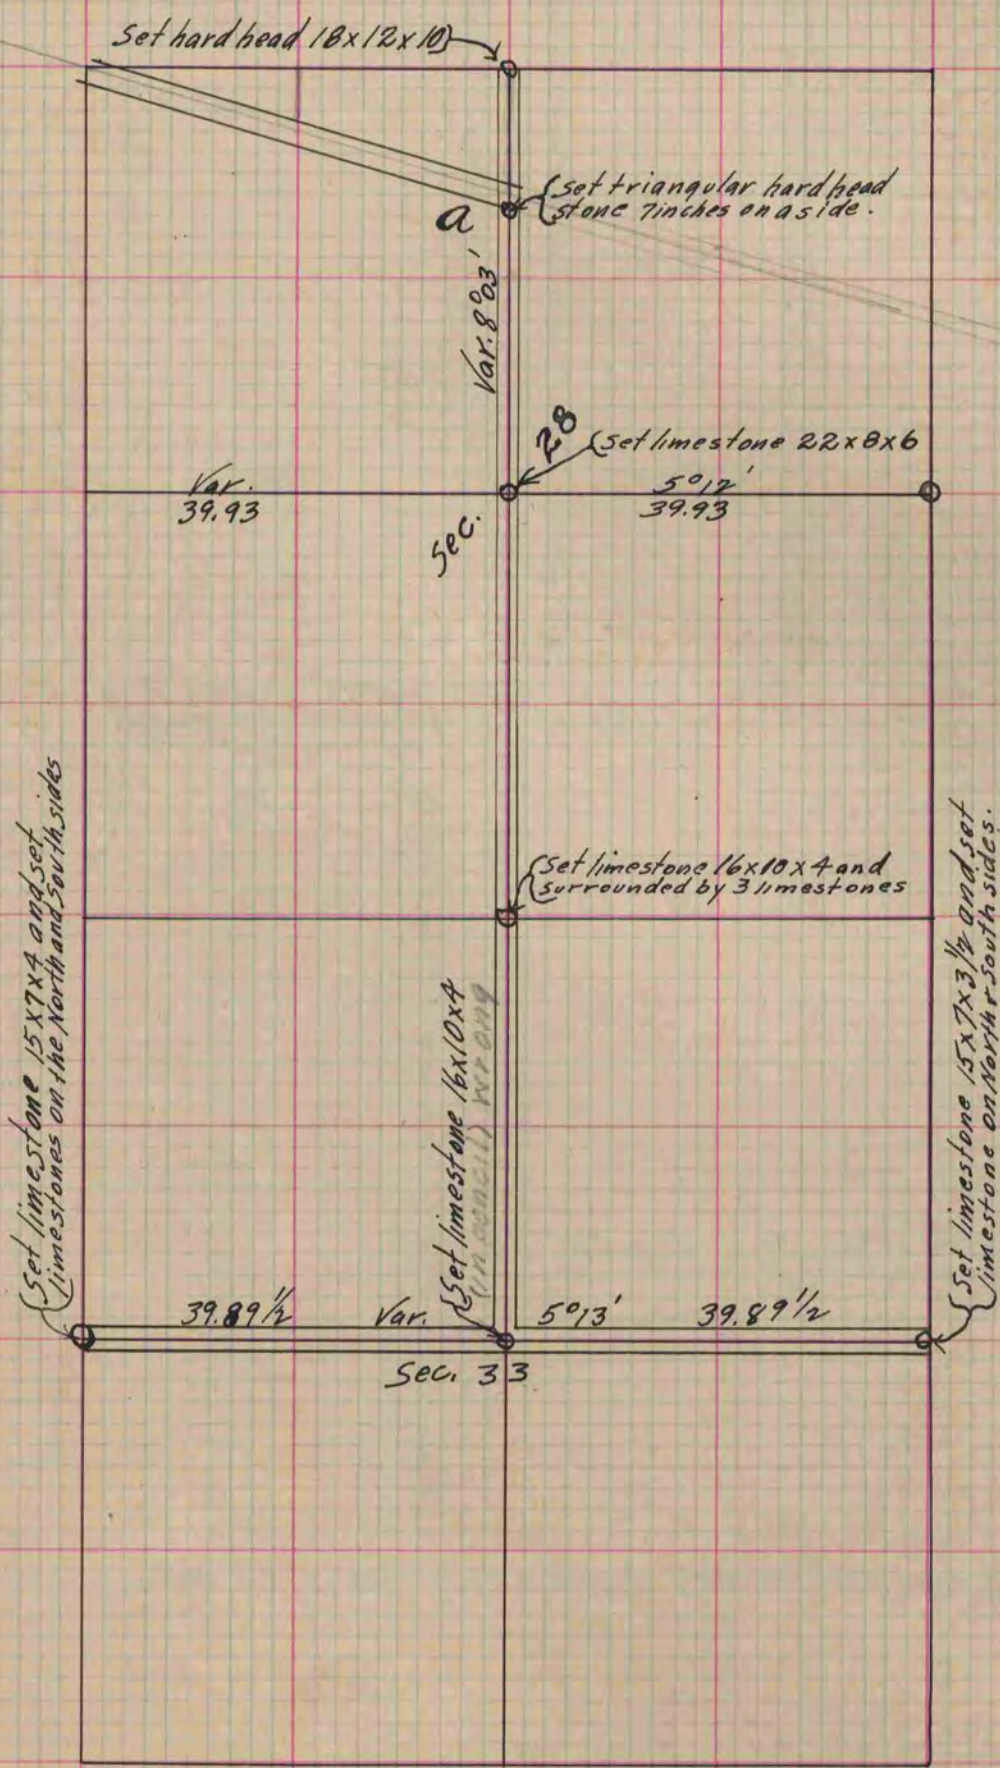 Set hard head 18x12x10}
{set triangular hard head
stone 7inches on a side.
a
Var. 8°03'
28
{set limestone 22x8x6
Var. 5°12'
39.93 39.93
Sec.
{Set limestone 16x10x4 and
surrounded by 3 limestones
{Set limestone 15x7x4 and set
limestones on the North and South sides
{Set limestone 16x10x4
(in pencil) wrong
{Set limestone 15x7x3½ and set
limestone on North & South sides.
39.89½ Var. 5°13' 39.89½
Sec. 33